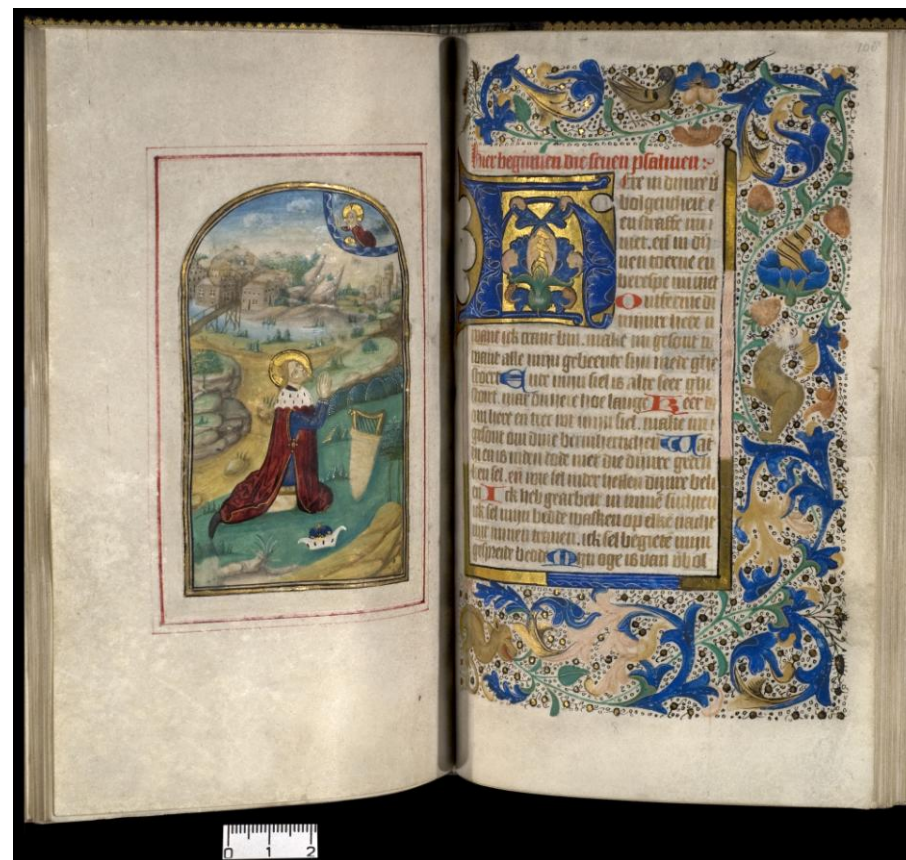 106
Hier beginnen die seuen psalmen
Ere in dinire v
bolgentheit e
en straffe mi
niet. en in dij
nen toerne en
berespe mi niet
Ontferme di
mijnre here
want ick cranc bin. make mi gesont
want alle mijn gebeente sijn
stoert Ende mijn siel is alte seer
stoert. mar du here hoe lange Keer
mi here en tree wt mijn siel. make mi
gesont om dine bermherticheit Want
en is inden dode niet die dijnre
ken sel. en wie sel inder hellen dijnre beli
en Ick heb gearbeit in minen suchten
ick sel mijn bedde wassen op elke nacht
mit minen tranen. ick sel begieten mijn
gespreide bedde Mijn oge is van
0 1 2